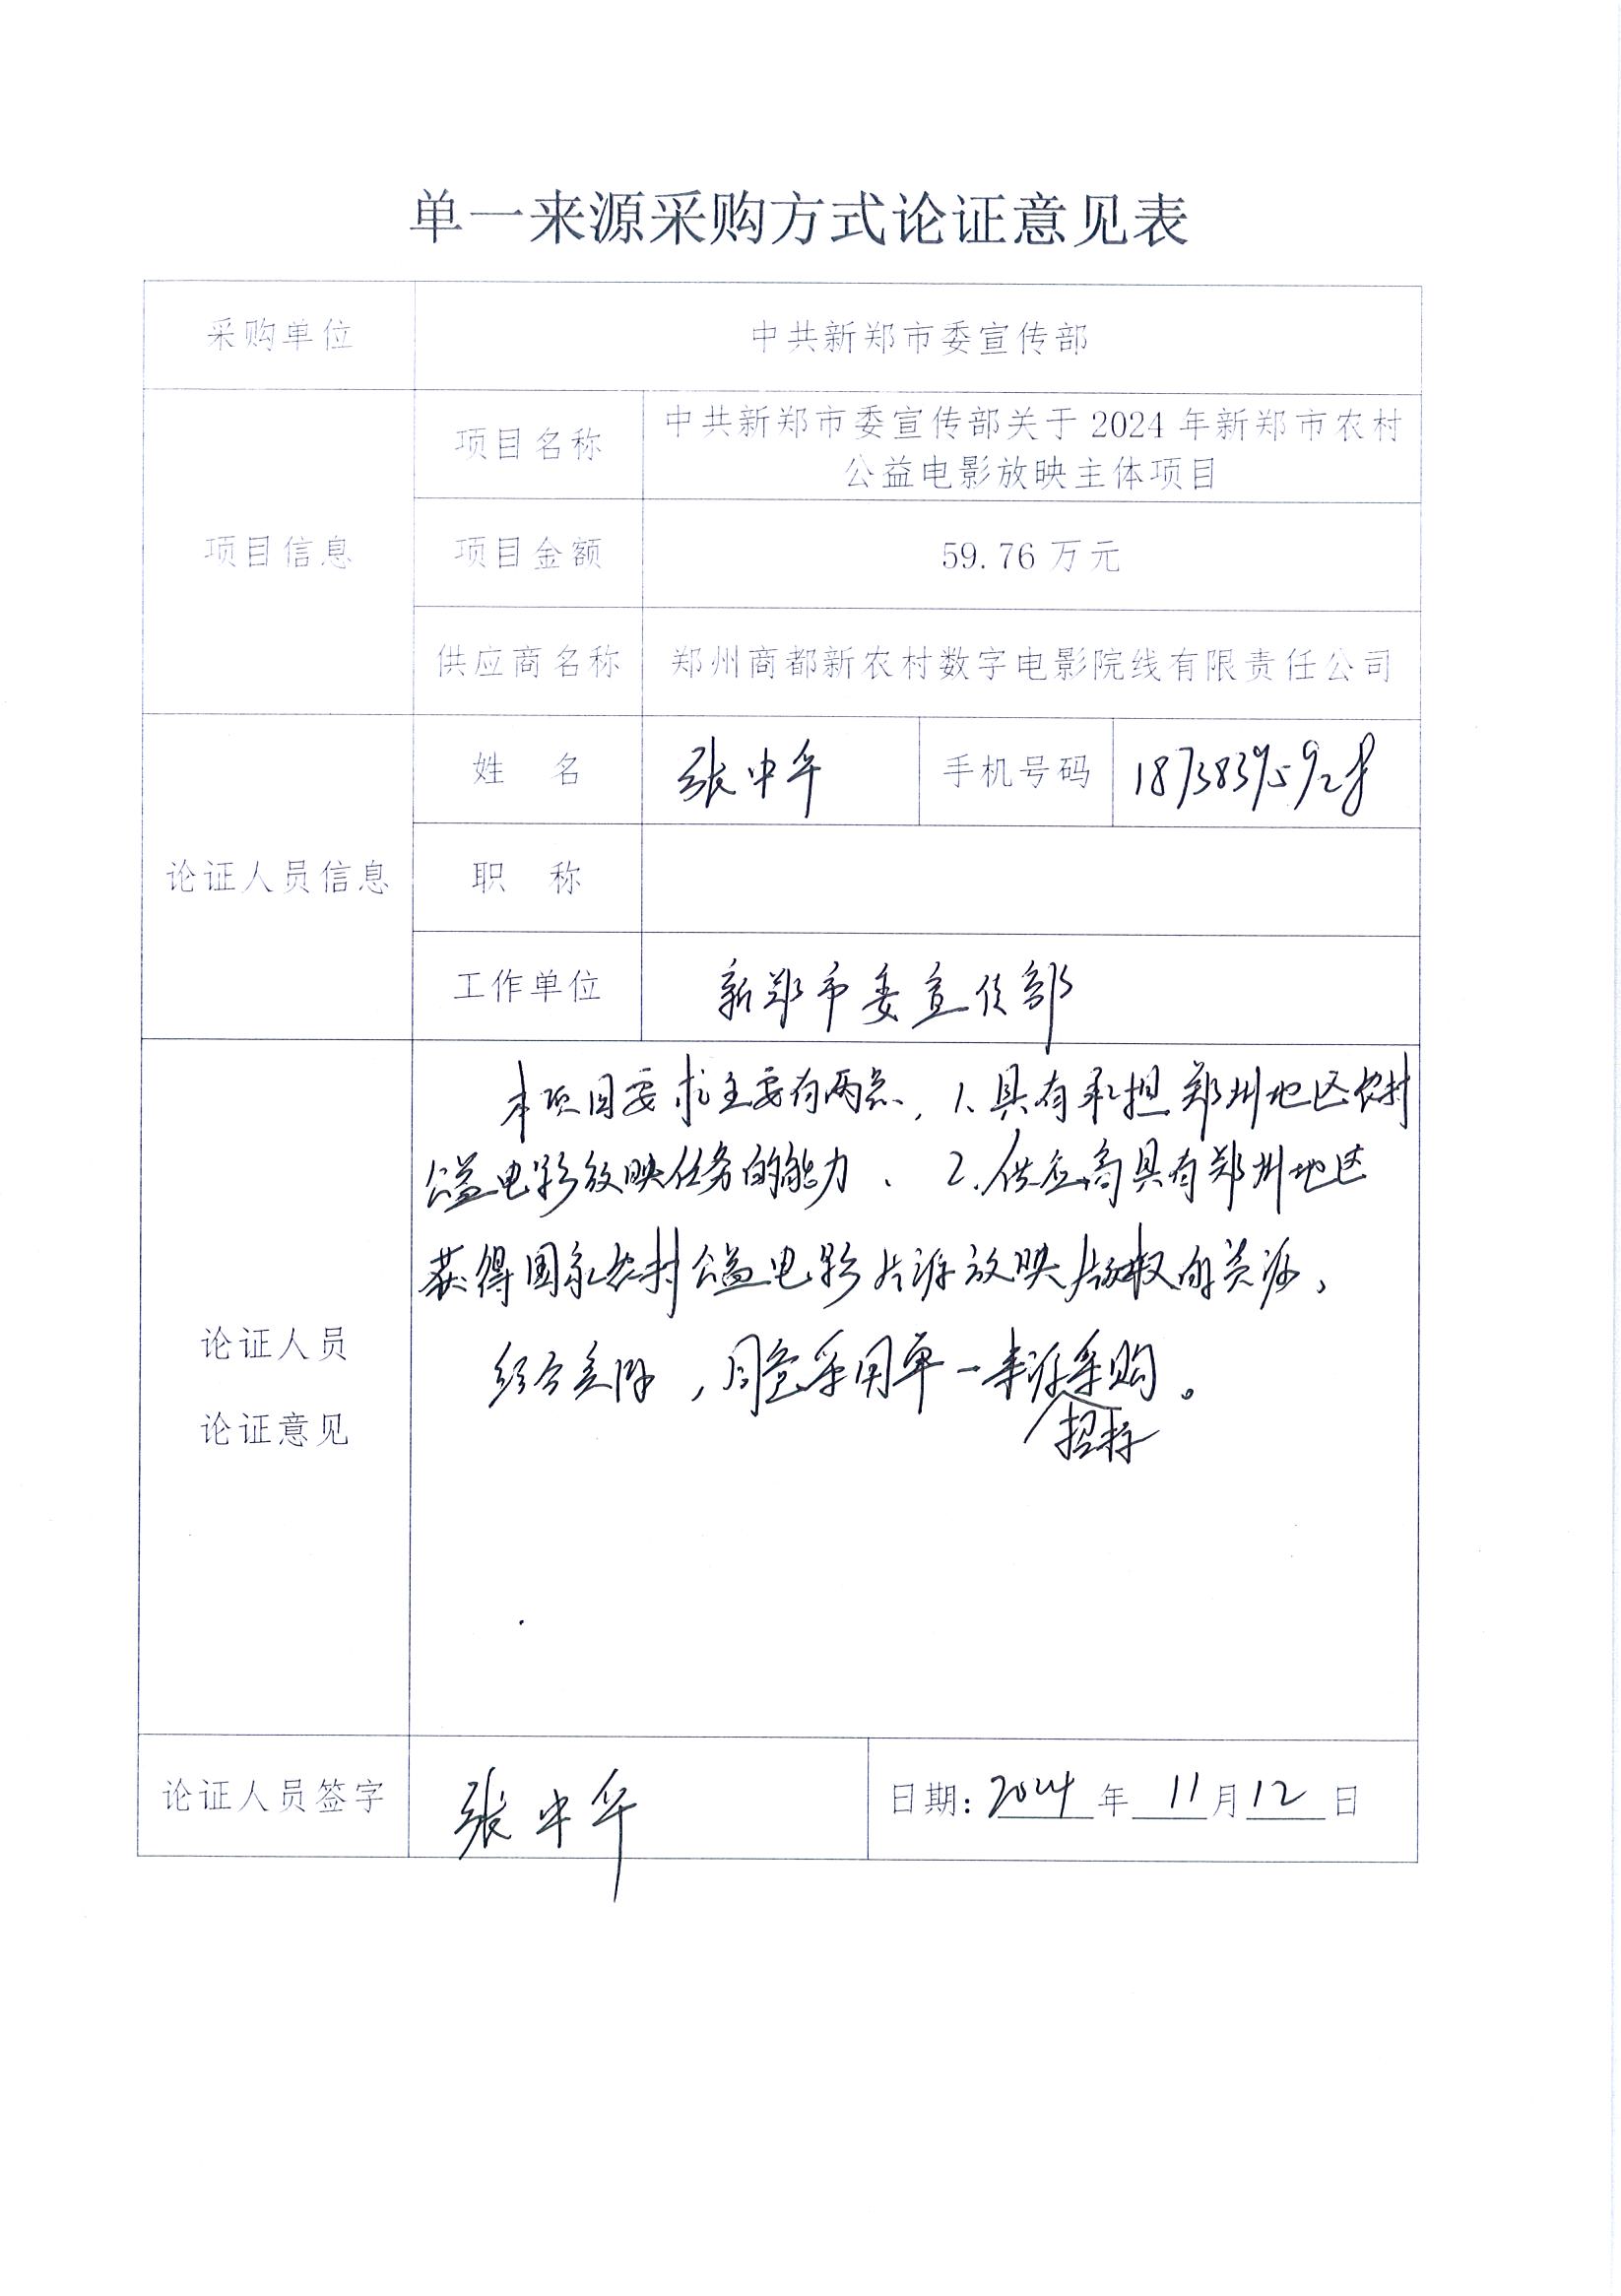 单一来源采购方式论证意见表
采购单位 中共新郑市委宣传部
项目信息 项目名称 中共新郑市委宣传部关于 2024 年新郑市农村
公益电影放映主体项目
项目金额 59.76 万元
供应商名称 郑州商都新农村数字电影院线有限责任公司
论证人员信息 姓 名 张中华 手机号码 18738395928
职 称
工作单位 新郑市委宣传部
本项目要求主要有两点，1、具有承担郑州地区农村
公益电影放映任务的能力、2、供应商具有郑州地区
获得国家农村公益电影片源放映版权的资源，
论证人员
论证意见
综合，同意采用单一来源采购。
招标
论证人员签字 张中华 日期: 2024 年 11 月 12 日